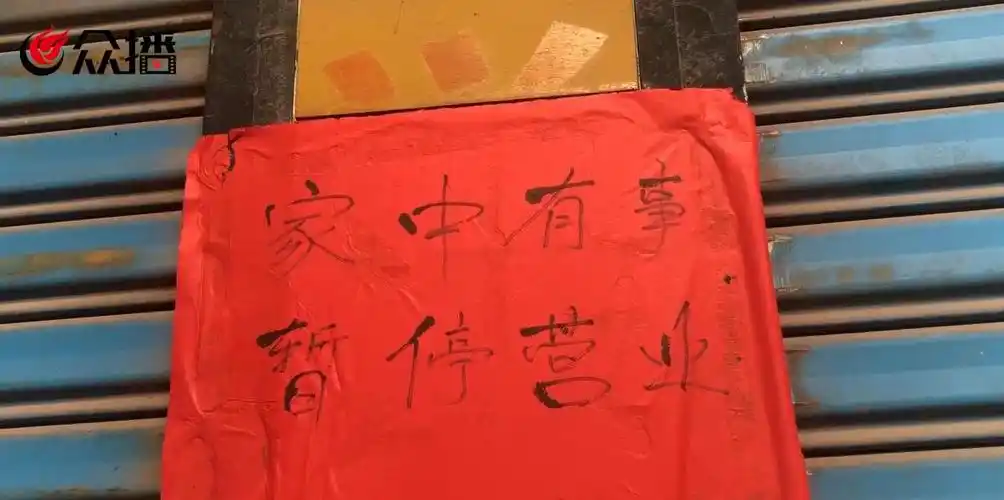 众播
家中有事
暂停营业